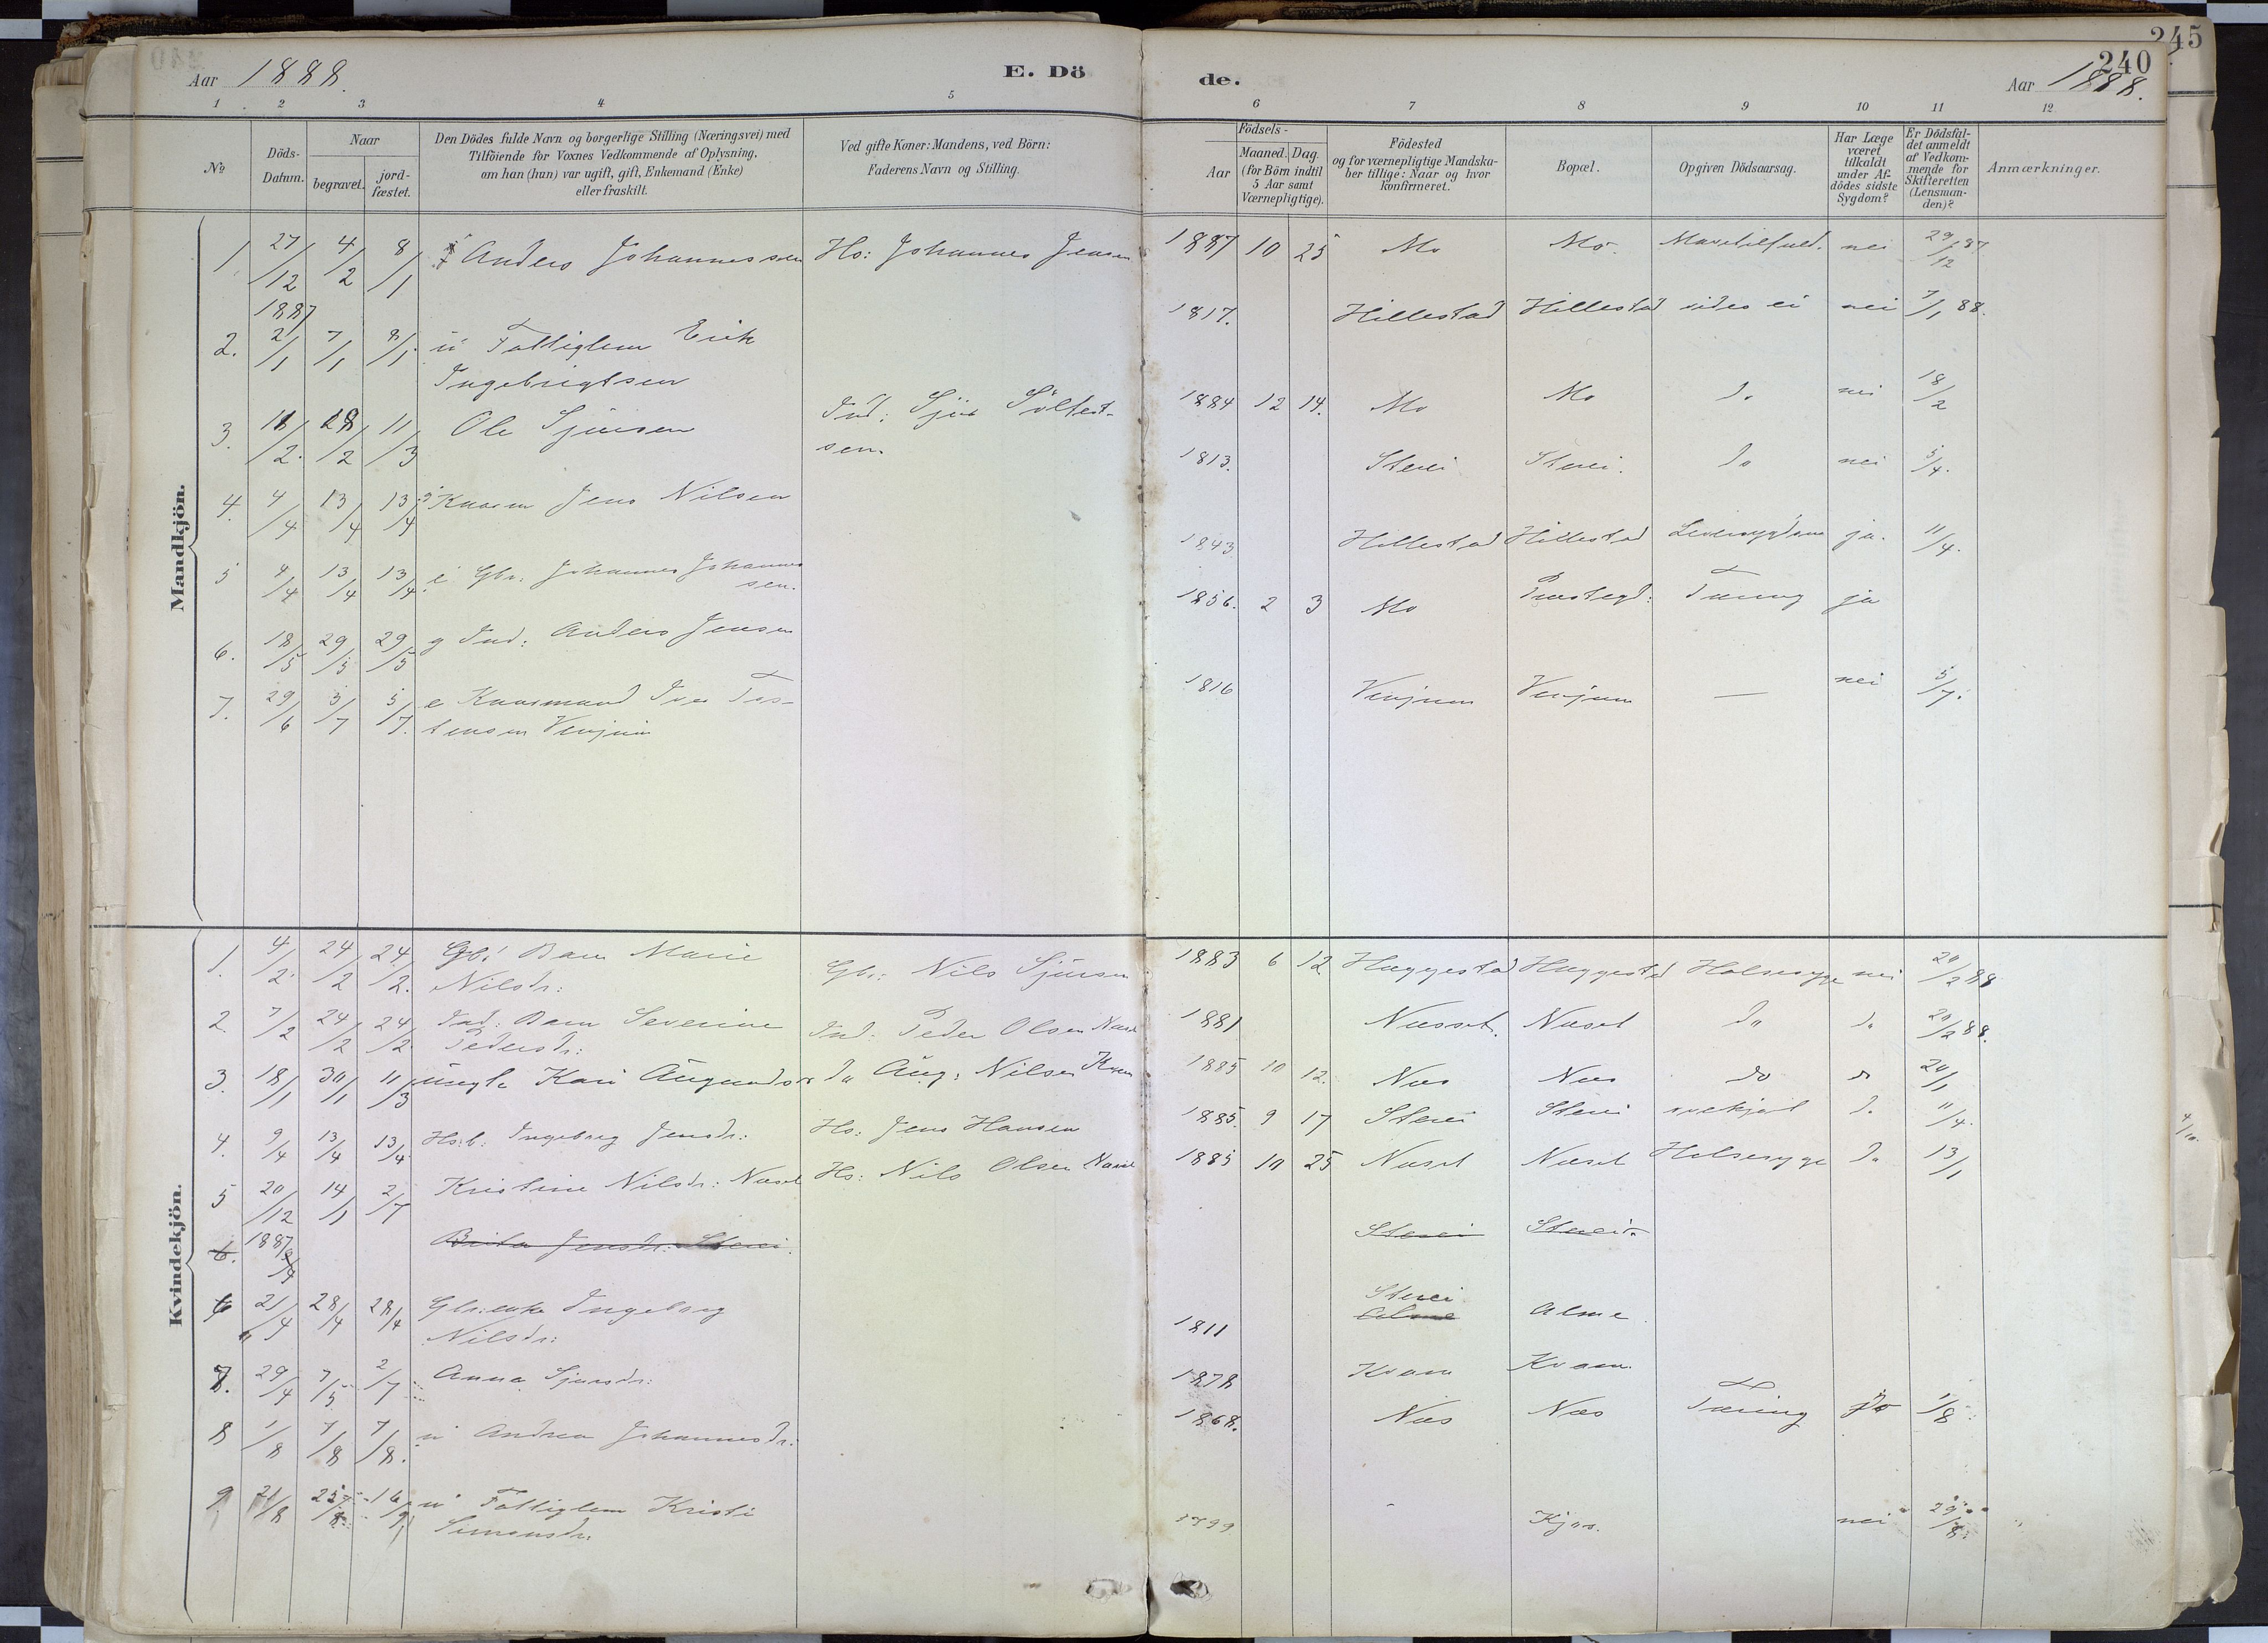 245
240
Aar 1888.
E. Dö
de.
Aar 1888.
1 2 3 4 5 6 7 8 9 10 11 12
No
Döds-Datum.
Naar
begravet.
jord-fæstet.
Den Dödes fulde Navn og borgerlige Stilling (Næringsvei) med
Tilföiende for Voxnes Vedkommende af Oplysning,
om han (hun) var ugift, gift, Enkemand (Enke)
eller fraskilt.
Ved gifte Koner: Mandens, ved Börn:
Faderens Navn og Stilling.
Födsels-
Aar
Maaned. Dag.
(for Börn indtil
5 Aar samt
Værnepligtige).
Födested
og for værnepligtige Mandska-
ber tillige: Naar og hvor
konfirmeret.
Bopæl.
Opgiven Dödsaarsag.
Har Læge
været
tilkaldt
under Af-
dödes sidste
Sygdom?
Er Dödsfal-
det anmeldt
af Vedkom-
mende for
Skifteretten
(Lensman-
den)?
Anmærkninger.
Mandkjön.
1 27/12 1887 4/2 8/1 Anders Johannessen Hs: Johannes Jensen 1887 10 25 Mo Mo nei 29/12 87
2. 2/1 7/1 8/1 ü Fattiglem Erik
Ingebrigtsen 1817. Hillestad Hillestad vides ei nei 7/1 88.
3. 11/2. 28/2 11/3 Ole Sjursen Ind: Sjur
sen. 1884 12 14. Mo Mo do nei 18/2
4. 4/4 13/4 13/4 Jens Nilsen 1813. Sterei Sterei. do nei 5/4.
5 4/4 13/4 13/4 Gbr. Johannes Johannes
sen. 1843 Hillestad Hillestad Leversygdom ja. 11/4.
6. 18/5 29/5 29/5 g Ind: Anders Jensen 1856. 2 3 Mo Tæring ja
7. 29/6 3/7 5/7. e Kaarmand Iver Tos-
tensen Venjum 1816 Venjum Venjum — nei 5/7.
Kvindekjön.
1. 4/2. 24/2 24/2. Gbr: Barn Marie
Nilsdr: Gbr: Nils Sjursen 1883 6 12 Huggestad Huggestad Halsesyge nei 20/2 88
2. 7/2 24/2 24/2. Ind: Barn Severine
Pedersdr: Ind: Peder Olsen Næset 1881 Næset. Næset do do 20/2 88.
3. 18/1 30/1 11/3 Kari do Aug: Nilsen 1885 10 12. Næs Næs do do 20/1
4. 9/4 13/4 13/4. Hs:b: Ingeborg Jensdr: Hs: Jens Hansen 1885. 9 17 Sterei Sterei do 11/4.
5 20/12 1887 14/1 2/7 Kristine Nilsdr: Næset Hs: Nils Olsen Næset 1885 10 25 Næset Næset Halsesyge do 13/1
6. Brita Jensdr: Sterei. Sterei Sterei
6 21/4 28/4 28/4 Gbr:enke Ingeborg
Nilsdr: 1811 Sterei
Alme Alme
7. 29/4 7/5 2/7 Anna Sjursdr: 1878 Kvam Kvam.
8 1/8 7/8 7/8. ü Andrea Johannesdr: 1868. Næs Næs Tæring 1/8
9 21/8 25/8 16/9 ü Fattiglem Kristi
Simonsdr: 1799 Kjös. nei 29/8